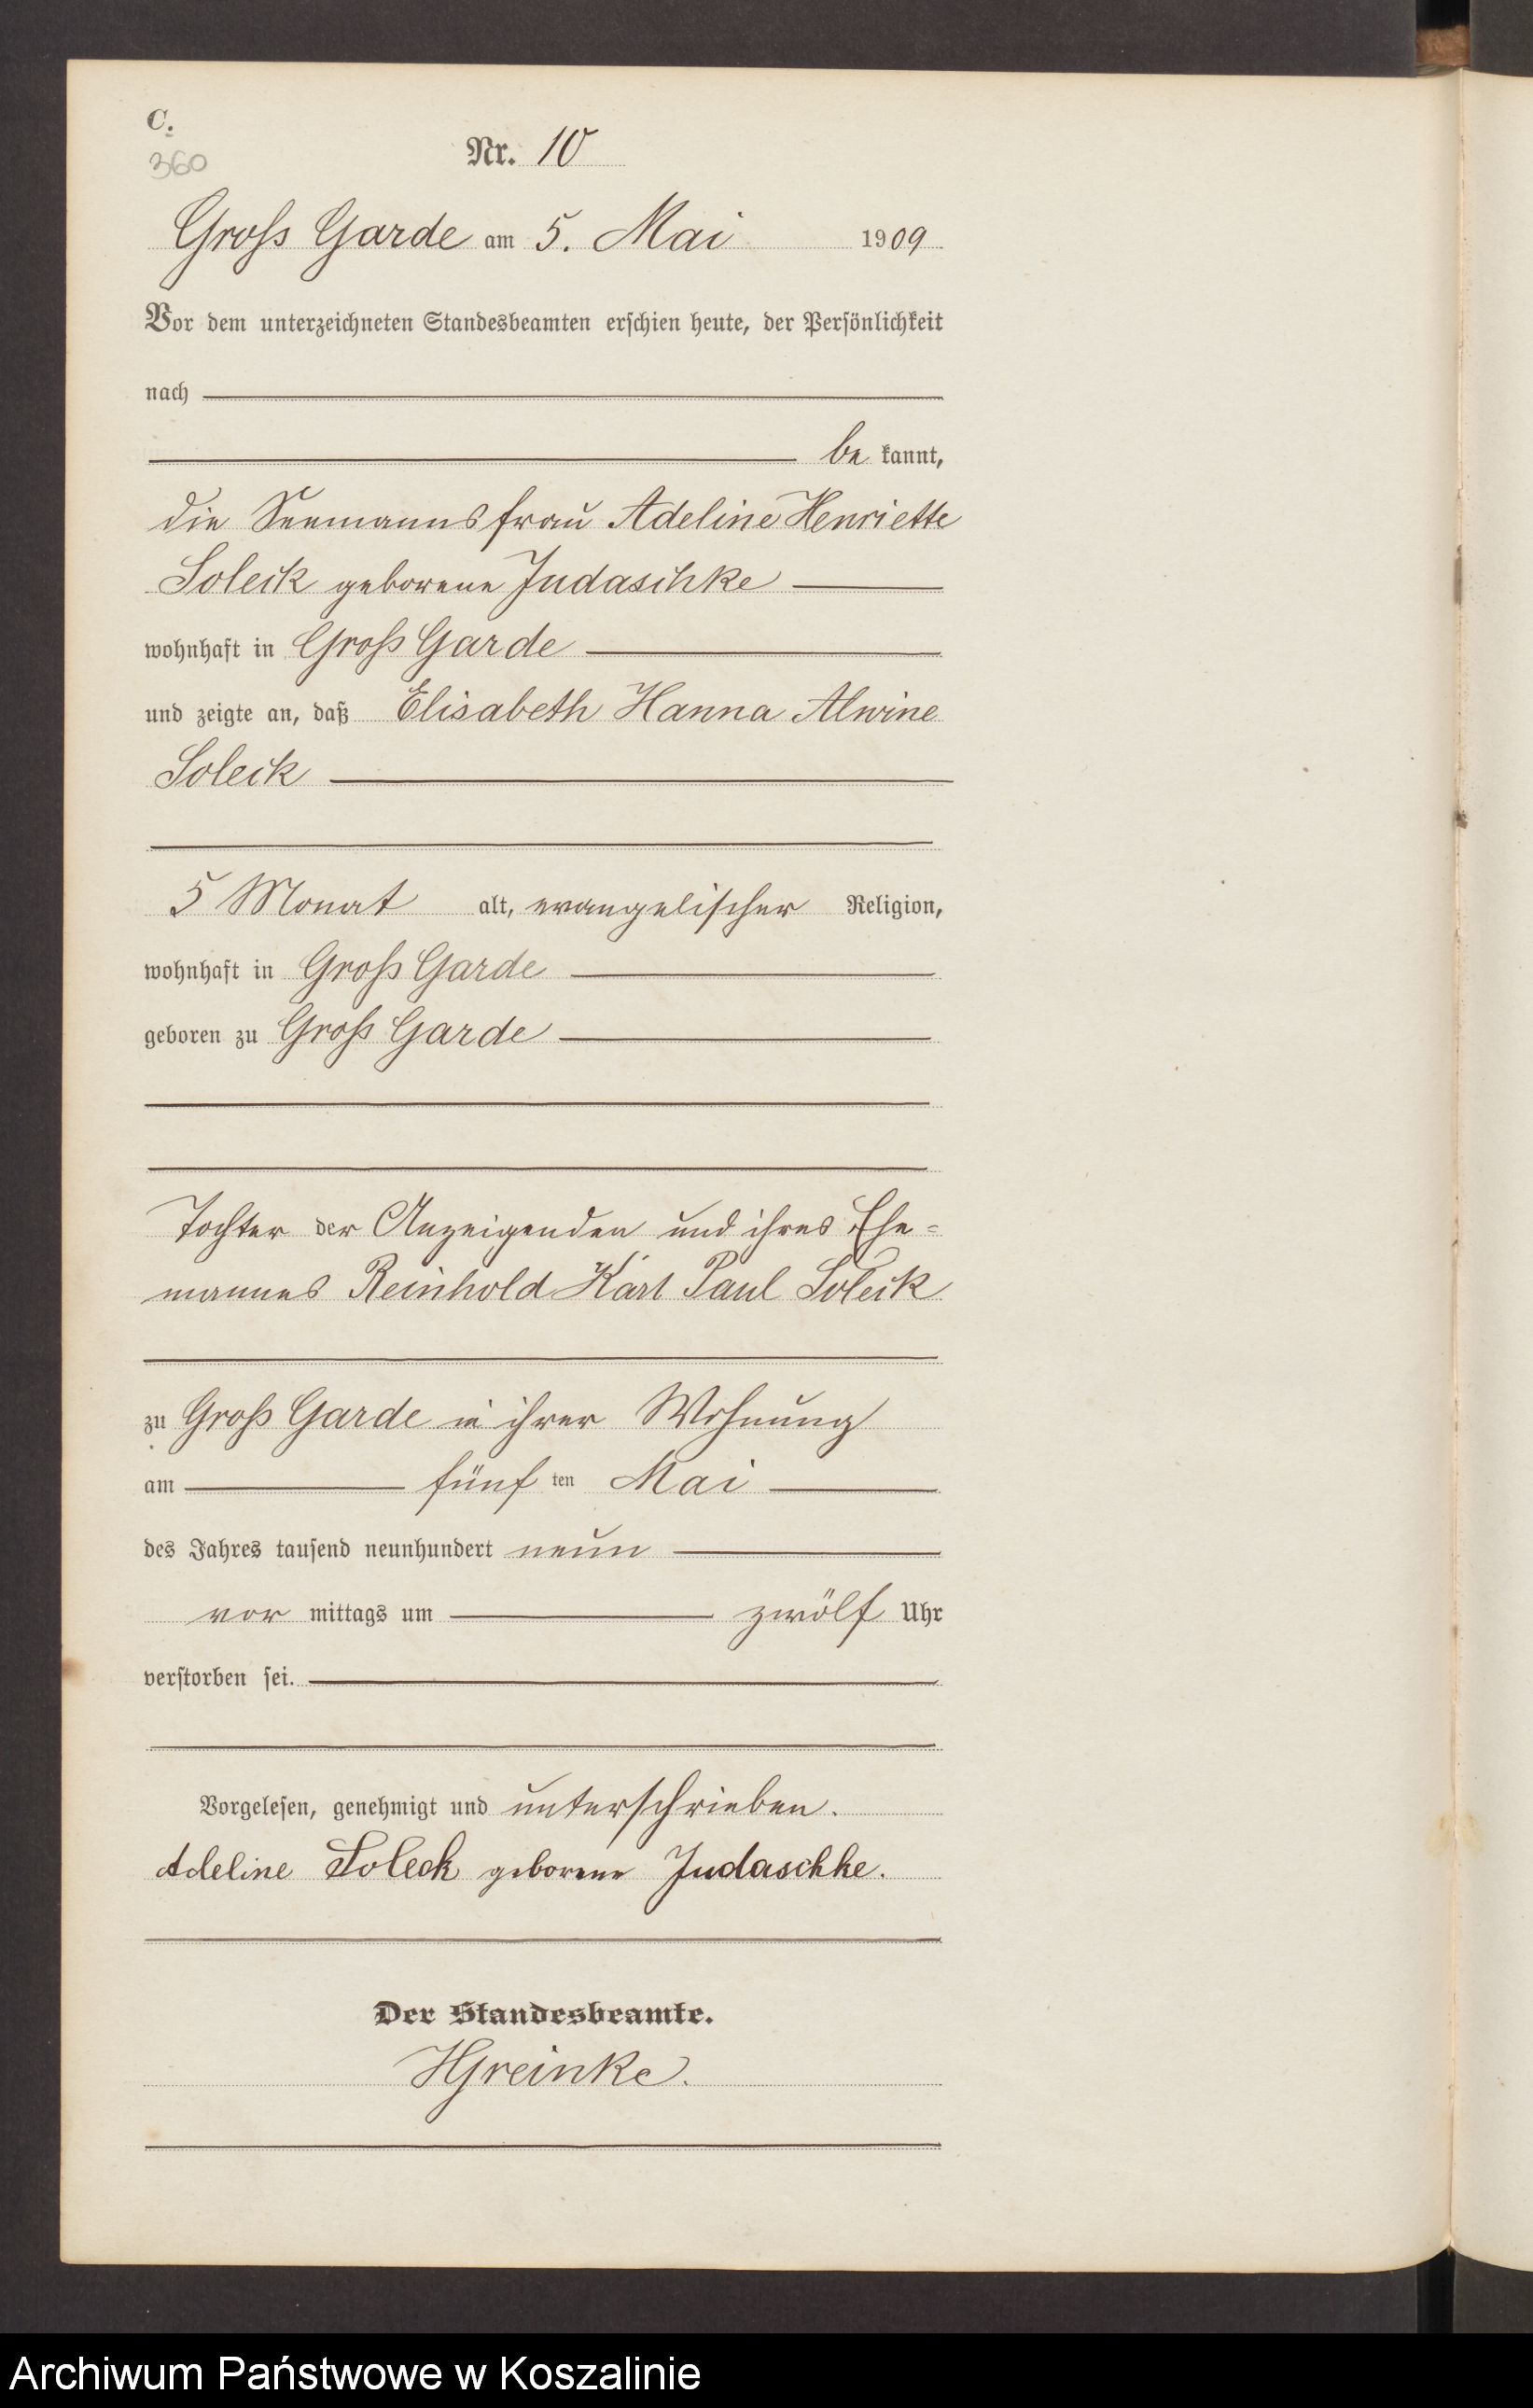 C.
360
Nr. 10
Gross Garde am 5. Mai 1909
Vor dem unterzeichneten Standesbeamten erschien heute, der Persönlichkeit
nach
be kannt,
die Seemannsfrau Adeline Henriette
Soleck geborene Judaschke
wohnhaft in Gross Garde
und zeigte an, daß Elisabeth Hanna Alwine
Soleck
5 Monat alt, evangelischer Religion,
wohnhaft in Gross Garde
geboren zu Gross Garde
Tochter der Anzeigenden und ihres Ehe=
mannes Reinhold Karl Paul Soleck
zu Gross Garde in ihrer Wohnung
am fünf ten Mai
des Jahres tausend neunhundert neun
vor mittags um zwölf Uhr
verstorben sei.
Vorgelesen, genehmigt und unterschrieben.
Adeline Soleck geborene Judaschke.
Der Standesbeamte.
HGreinke.
Archiwum Państwowe w Koszalinie